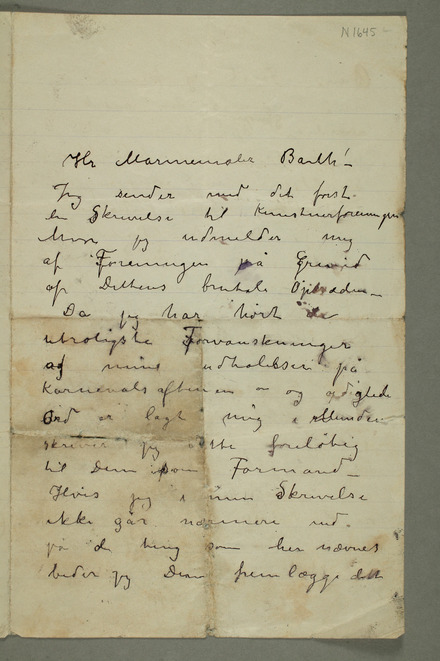 N1645
Hr Marinemaler Barth! –
Jeg sender med det første
en Skrivelse til Kunstnerforeningen
hvor jeg udmelder mig
af Foreningen på Grund
af Dittens brutale Optræden –
Da jeg har hørt de
utroligste Forvanskninger
af mine udtalelser på
Karnevalsaftenen – og
Ord er lagt mig i Munden
skriver jeg dette foreløbig
til Dem som Formand –
Hvis jeg i min Skrivelse
ikke går nærmere ind
på de ting som her nævnes
beder jeg Dem fremlægge dette